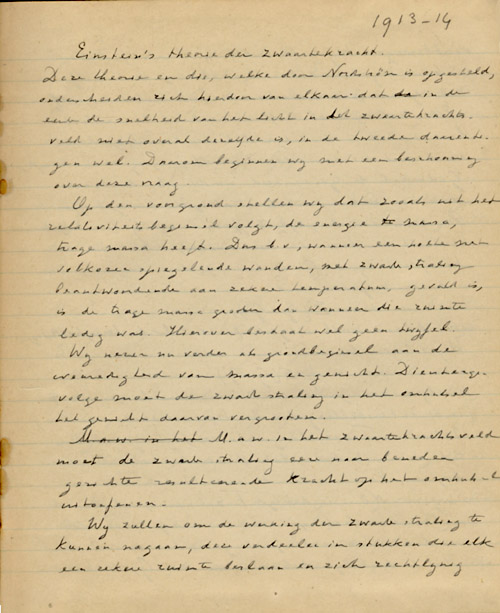 1913-14
Einstein's theorie der zwaartekracht.
Deze theorie en die, welke door Nordström is opgesteld,
onderscheiden zich hierdoor van elkaar dat in de
eerste de snelheid van het licht in het zwaartekrachts
veld niet overal dezelfde is, in de tweede daarente-
gen wel. Daarom beginnen wij met een beschouwing
over deze vraag.
Op den voorgrond stellen wij dat zooals uit het
relativiteitsbeginsel volgt, de energie massa,
trage massa heeft. Dus b.v, wanneer een holte met
volkomen spiegelende wanden, met zwarte straling
beantwoordende aan zekere temperatuur, gevuld is,
is de trage massa grooter dan wanneer die ruimte
ledig was. Hierover bestaat wel geen twijfel.
Wij nemen nu verder als grondbeginsel aan de
evenredigheid van massa en gewicht. Dientenge-
volge moet de zwarte straling in het omhulsel
het gewicht daarvan vergrooten.
M.a.w. in het M.a.w. in het zwaartekrachtsveld
moet de zwarte straling eene naar beneden
gerichte resulteerende kracht op het omhulsel
uitoefenen.
Wij zullen om de werking der zwarte straling te
kunnen nagaan, deze verdeelen in stukken die elk
een zekere ruimte beslaan en zich rechtlijnig